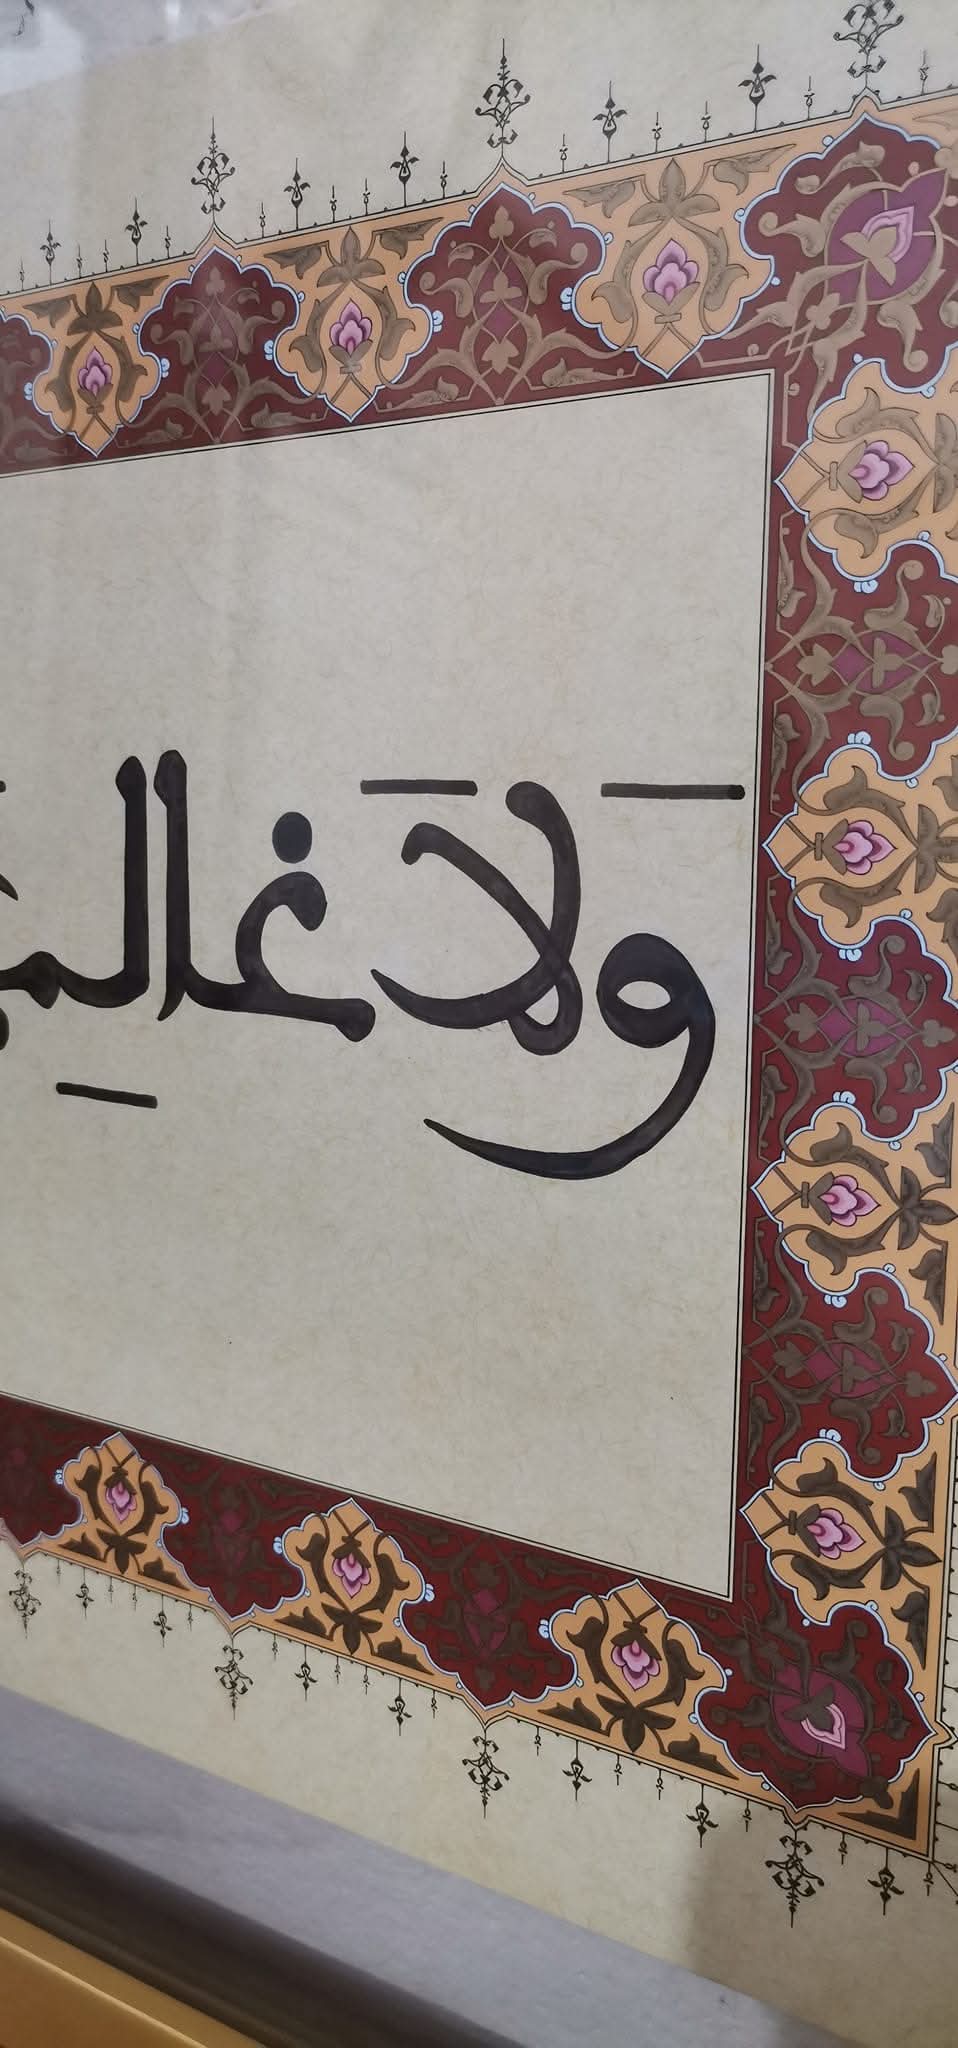 وَلَا غالِبَ